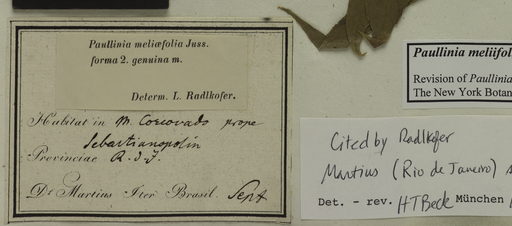 Paullinia meliæfolia Juss.
forma 2. genuina m.
Determ. L. Radlkofer.
Habitat in M. Corcovado prope
Sebastianopolin
Provinciae R. d. J.
Dr Martius Iter Brasil. Sept
Paullinia meliifol
Revision of Paullinia
The New York Botan
Cited by Radlkofer
Martius (Rio de Janeiro)
Det. - rev. HTBeck München